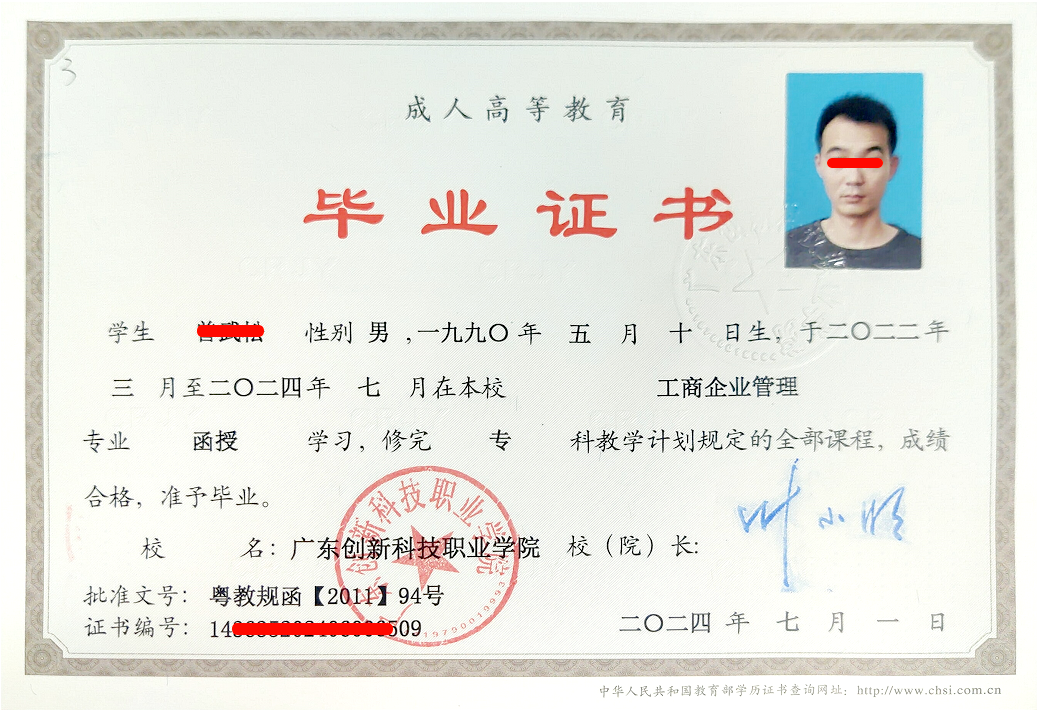 3
成人高等教育
毕业证书
学生 性别 男 ,一九九〇年 五 月 十 日生, 于二〇二二年
三 月至二〇二四年 七 月在本校 工商企业管理
专业 函授 学习, 修完 专 科教学计划规定的全部课程, 成绩
合格, 准予毕业。
校 名: 广东创新科技职业学院 校（院）长:
叶小明
批准文号: 粤教规函【2011】94号
证书编号: 14 509
二〇二四 年 七 月 一 日
广东创新科技职业学院
中华人民共和国教育部学历证书查询网址: http://www.chsi.com.cn